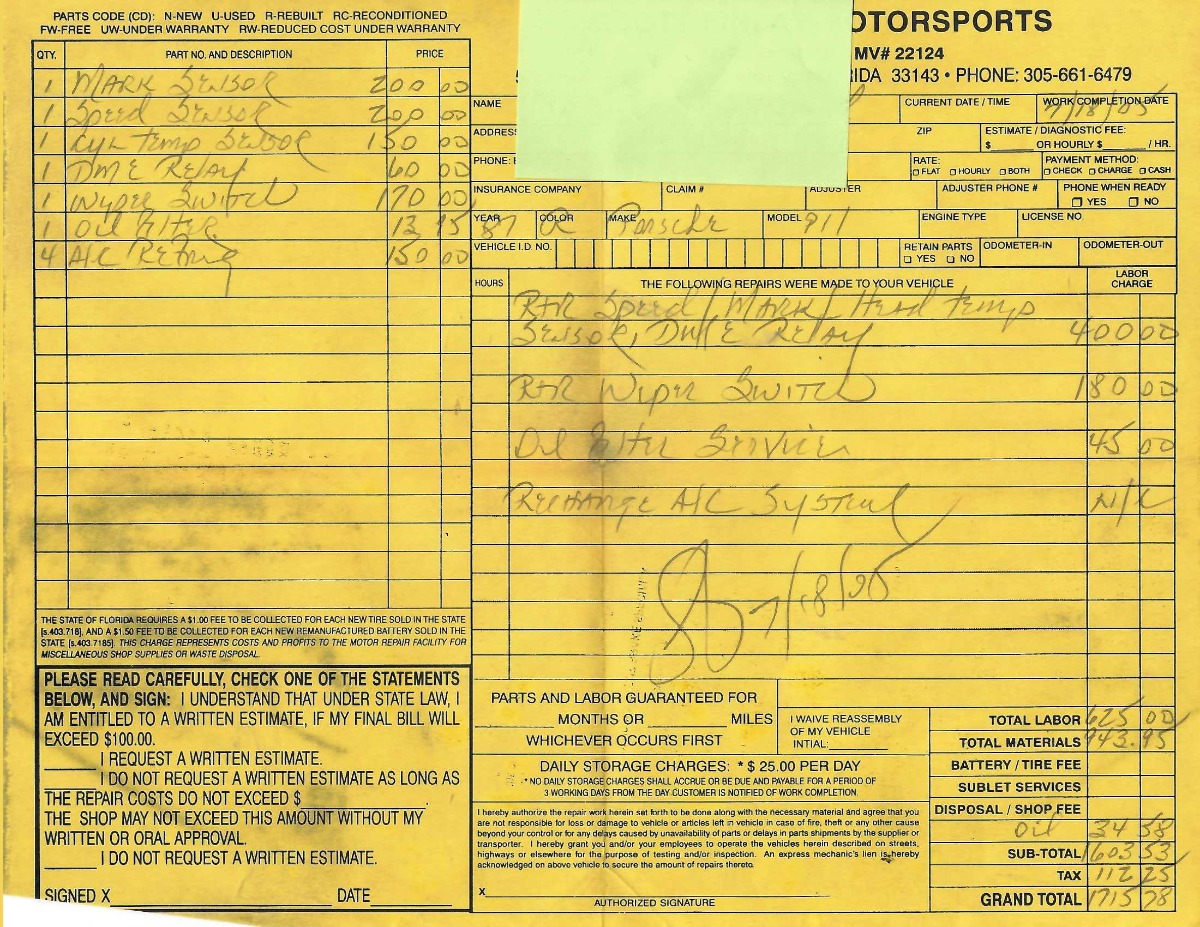 PARTS CODE (CD): N-NEW U-USED R-REBUILT RC-RECONDITIONED
FW-FREE UW-UNDER WARRANTY RW-REDUCED COST UNDER WARRANTY
QTY. PART NO. AND DESCRIPTION PRICE
1 Mark Sensor 200 00
1 Speed Sensor 200 00
1 Cyl Temp Sensor 150 00
1 DME Relay 60 00
1 Wyper Switch 170 00
1 Oil Filter 13 95
4 A/C Refrig 150 00
THE STATE OF FLORIDA REQUIRES A $1.00 FEE TO BE COLLECTED FOR EACH NEW TIRE SOLD IN THE STATE
[s.403.718], AND A $1.50 FEE TO BE COLLECTED FOR EACH NEW REMANUFACTURED BATTERY SOLD IN THE
STATE [s.403.7185]. THIS CHARGE REPRESENTS COSTS AND PROFITS TO THE MOTOR REPAIR FACILITY FOR
MISCELLANEOUS SHOP SUPPLIES OR WASTE DISPOSAL.
PLEASE READ CAREFULLY, CHECK ONE OF THE STATEMENTS
BELOW, AND SIGN: I UNDERSTAND THAT UNDER STATE LAW, I
AM ENTITLED TO A WRITTEN ESTIMATE, IF MY FINAL BILL WILL
EXCEED $100.00.
I REQUEST A WRITTEN ESTIMATE.
I DO NOT REQUEST A WRITTEN ESTIMATE AS LONG AS
THE REPAIR COSTS DO NOT EXCEED $
THE SHOP MAY NOT EXCEED THIS AMOUNT WITHOUT MY
WRITTEN OR ORAL APPROVAL.
I DO NOT REQUEST A WRITTEN ESTIMATE.
SIGNED X DATE
OTORSPORTS
MV# 22124
RIDA 33143 • PHONE: 305-661-6479
NAME CURRENT DATE / TIME WORK COMPLETION DATE
7/18/05
ADDRESS ZIP ESTIMATE / DIAGNOSTIC FEE:
$ OR HOURLY $ / HR.
PHONE: RATE: PAYMENT METHOD:
FLAT HOURLY BOTH CHECK CHARGE CASH
INSURANCE COMPANY CLAIM # ADJUSTER ADJUSTER PHONE # PHONE WHEN READY
YES NO
YEAR 87 COLOR MAKE Porsche MODEL 911 ENGINE TYPE LICENSE NO.
VEHICLE I.D. NO. RETAIN PARTS ODOMETER-IN ODOMETER-OUT
YES NO
HOURS THE FOLLOWING REPAIRS WERE MADE TO YOUR VEHICLE LABOR CHARGE
R+R Speed / Mark / Head temp
Sensor, DME Relay 400 00
R+R Wiper Switch 180 00
Oil Filter Service 45 00
Recharge A/C System N/C
7/18/05
PARTS AND LABOR GUARANTEED FOR
MONTHS OR MILES
WHICHEVER OCCURS FIRST
I WAIVE REASSEMBLY
OF MY VEHICLE
INTIAL:
DAILY STORAGE CHARGES: * $ 25.00 PER DAY
* NO DAILY STORAGE CHARGES SHALL ACCRUE OR BE DUE AND PAYABLE FOR A PERIOD OF
3 WORKING DAYS FROM THE DAY CUSTOMER IS NOTIFIED OF WORK COMPLETION.
I hereby authorize the repair work herein set forth to be done along with the necessary material and agree that you
are not responsible for loss or damage to vehicle or articles left in vehicle in case of fire, theft or any other cause
beyond your control or for any delays caused by unavailability of parts or delays in parts shipments by the supplier or
transporter. I hereby grant you and/or your employees to operate the vehicles herein described on streets,
highways or elsewhere for the purpose of testing and/or inspection. An express mechanic's lien is hereby
acknowledged on above vehicle to secure the amount of repairs thereto.
X
AUTHORIZED SIGNATURE
TOTAL LABOR 625 00
TOTAL MATERIALS 943.95
BATTERY / TIRE FEE
SUBLET SERVICES
DISPOSAL / SHOP FEE
oil 34 58
SUB-TOTAL 1603 53
TAX 112 25
GRAND TOTAL 1715 78